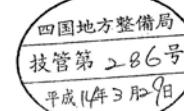 四国地方整備局
技管第286号
平成14年3月29日